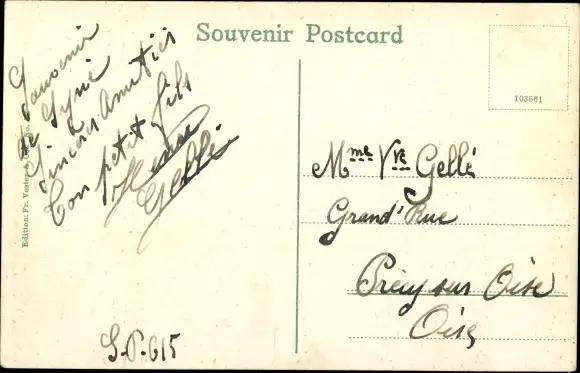 Souvenir Postcard
103561
Souvenir
de Syrie
Sincères Amitiés
Ton petit fils
Gellé
Edition: Fr. Vester
S.P. 615
Mme Vve Gellé
Grand' Rue
Précy sur Oise
Oise